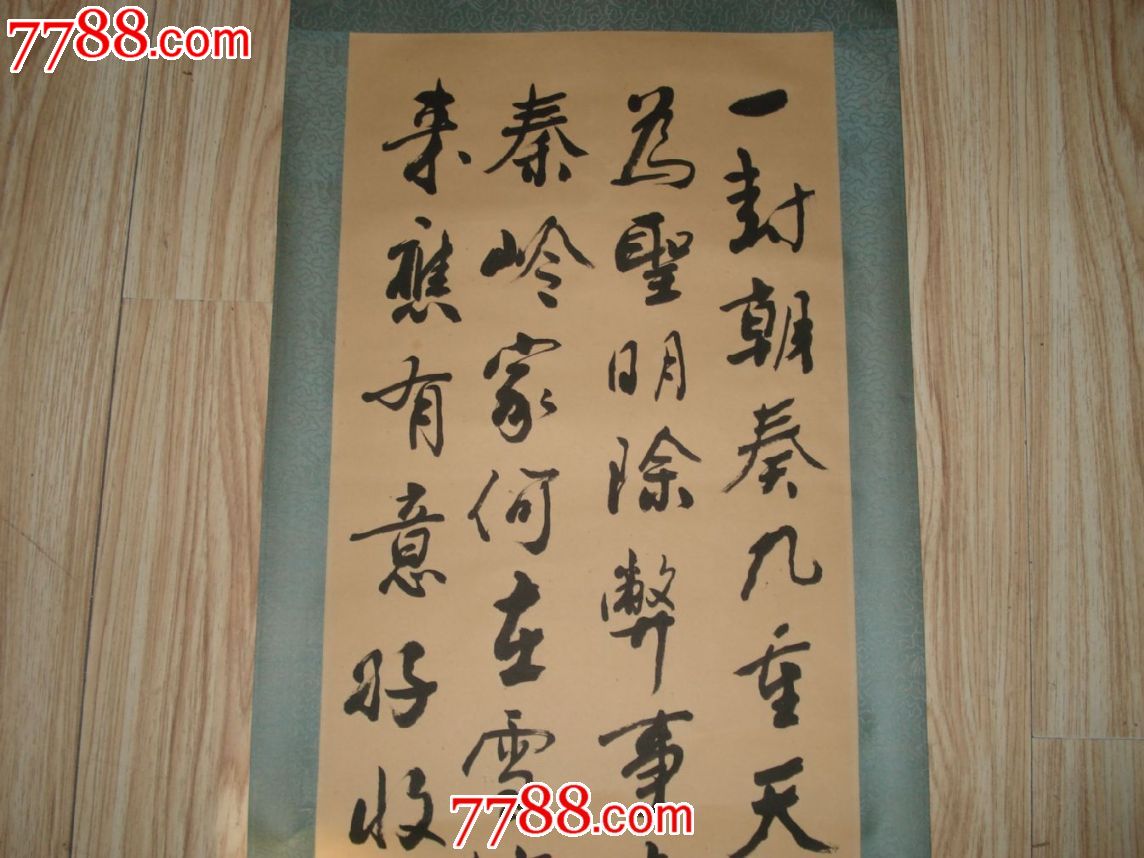 7788.com
7788.com
一封朝奏九重天
为聖明除弊事
秦岭家何在雪
来應有意好收
7788.com